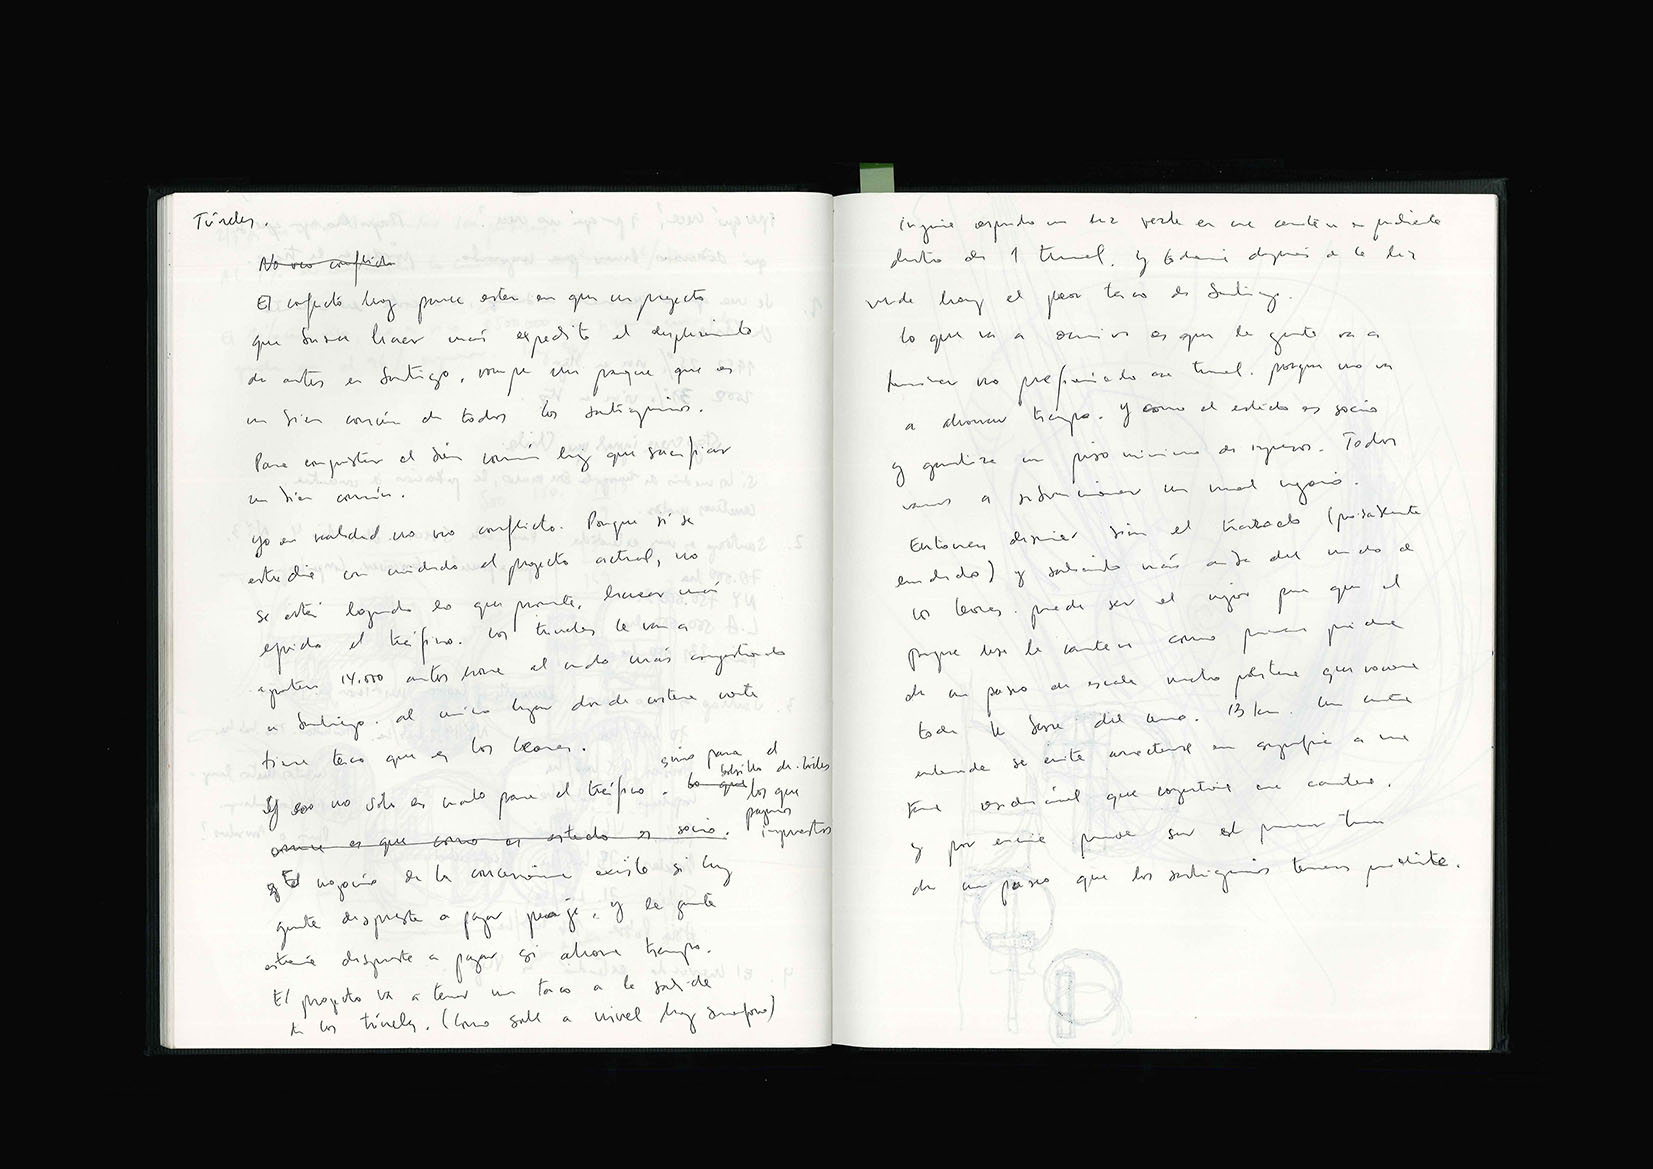 Túneles.
No veo conflicto
El conflicto hoy parece estar en que un proyecto
que busca hacer más expedito el desplazamiento
de autos en Santiago, rompe un parque que es
un bien común de todos los santiaguinos.
Para conquistar el bien común hay que sacrificar
un bien común.
Yo en realidad no veo conflicto. Porque si se
estudia con cuidado el proyecto actual, no
se está logrando lo que promete, hacer más
expedito el tráfico. Los túneles le van a
aportar 14.000 autos al nudo más congestionado
de Santiago. al único lugar donde costanera norte
tiene taco que es los leones.
Y eso no sólo es malo para el tráfico. Lo que sino para el
bolsillo de todos
los que
pagamos
impuestos
ocurre es que como el estado es socio.
y El negocio de la concesión existe si hay
gente dispuesta a pagar peaje. y la gente
estaría dispuesta a pagar si ahorra tiempo.
El proyecto va a tener un taco a la salida
de los túneles. (Como sale a nivel hay semáforo)
esperando una luz verde en una
dentro de 1 tunel. y todavía después de la luz
verde hay el peor taco de Santiago.
Lo que va a ocurrir es que la gente va a
terminar no prefiriendo ese tunel. porque no va
a ahorrar tiempo. Y como el estado es socio
y garantiza un piso mínimo de ingresos. Todos
vamos a subvencionar un mal negocio.
Entonces el trazado
y saliendo más allá del nudo de
los leones. puede ser el mejor para que el
parque use la como primera piedra
de un paseo de escala mucho que recorre
toda la base del cerro. 13 km.
entonces se evita
que
y por encima puede ser el primer tramo
de un paseo que los santiaguinos tenemos pendiente.